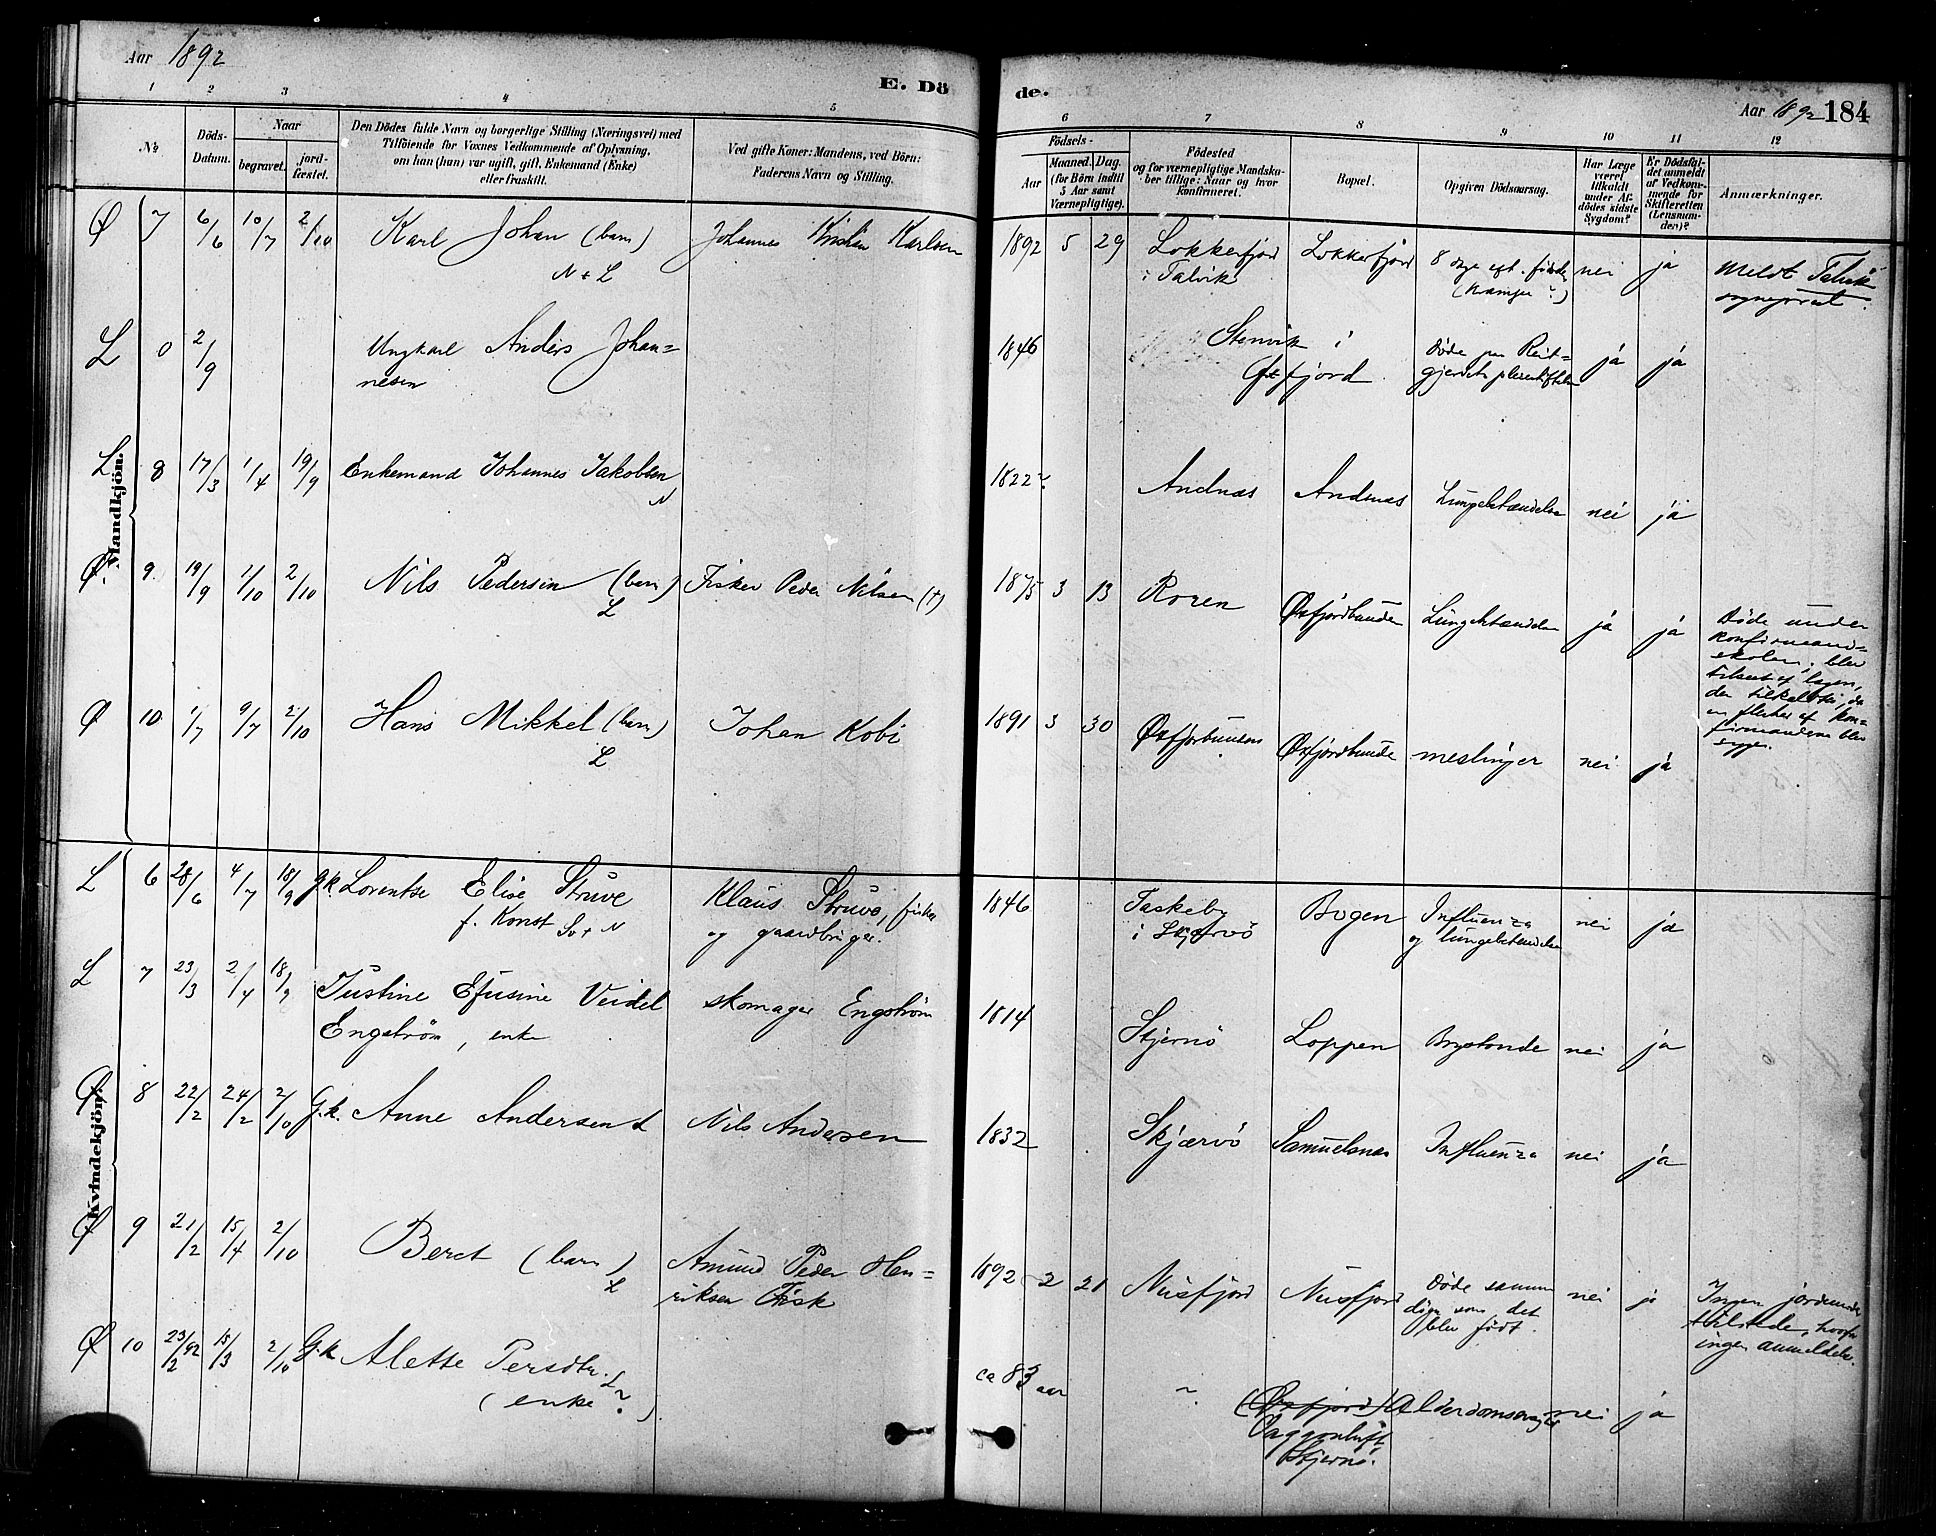 Aar 1892
E. Dö
de.
Aar 1892 184
1 2 3 4 5 6 7 8 9 10 11 12
No
Döds-Datum.
Naar
begravet.
jord-fæstet.
Den Dödes fulde Navn og borgerlige Stilling (Næringsvei) med
Tilföiende for Voxnes Vedkommende af Oplysning,
om han (hun) var ugift, gift, Enkemand (Enke)
eller fraskilt.
Ved gifte Koner: Mandens, ved Börn:
Faderens Navn og Stilling.
Födsels-
Aar
Maaned. Dag.
(for Börn indtil
5 Aar samt
Værnepligtige).
Födested
og for værnepligtige Mandska-
ber tillige: Naar og hvor
konfirmeret.
Bopæl.
Opgiven Dödsaarsag.
Har Læge
været
tilkaldt
under Af-
dödes sidste
Sygdom?
Er Dödsfal-
det anmeldt
af Vedkom-
mende for
Skifteretten
(Lensman-
den)?
Anmærkninger.
Mandkjön.
Ø 7 6/6 10/7 2/10 Karl Johan (barn) Johannes Karlsen 1892 5 29 Lokkerfjord Lokkerfjord nei ja meldt Talvik
N + L
i Talvik
sogneprest.
L 0 2/9 Ungkarl Anders Johan= 1846 Stenvik i Døde paa Reit= ja ja
nesen
Øxfjord. gjerdets pleiestiftelse
L 8 17/3 1/4 19/9 Enkemand Johannes Jakobsen 1822? Andnæs Andnæs Lungebetændelse nei ja
N
Ø. 9. 19/9 1/10 2/10 Nils Pedersen (barn) Fisker Peder Nilsen (†) 1875 3 13 Øxfjordbunden Lungebetændelse ja ja
L
Døde under
konfirmand=
skolen, blev
tilseet af lægen,
der tilkaldtes, da
en flerhed af kon=
firmanderne blev
syge.
Ø 10 1/7 9/7 2/10 Hans Mikkel (barn) Johan Kobi 1891 3 30 Øxfjorbunden Øxfjordbunde meslinger nei ja
L
Kvindekjön.
L 6 28/6 4/7 18/9 gk. Lorentse Elise Struve Klaus Struve, fisker 1846 Taskeby Bogen Influenza nei ja
f. Konst Sv + N og gaardbruger. i Skjærvö og lungebetændelse
L 7 23/3 2/4 18/9 Justine Efusine Veidel skomager Engström 1814 Stjernö Loppen Brystonde nei ja
Engström, enke
Ø 8 22/2 24/2 2/10 G.k. Anne Andersen L Nils Andersen 1832 Skjærvö Samuelsnæs Influenza nei ja
Ø 9 21/2 15/4 2/10 Beret (barn) Amund Peder Hen= 1892 2 21 Nusfjord Nusfjord Døde samme nei ja Ingen jordmoder
L riksen Fisk dag som det tilstede, hvorfor
blev født. ingen anmeldelse.
Ø 10 23/2 92 15/3 2/10 G.k Alette Persdtr. L? ca 83 aar ~ (Øxfjord) Alderdomssvaghed nei ja
(enke)
Stjernö.